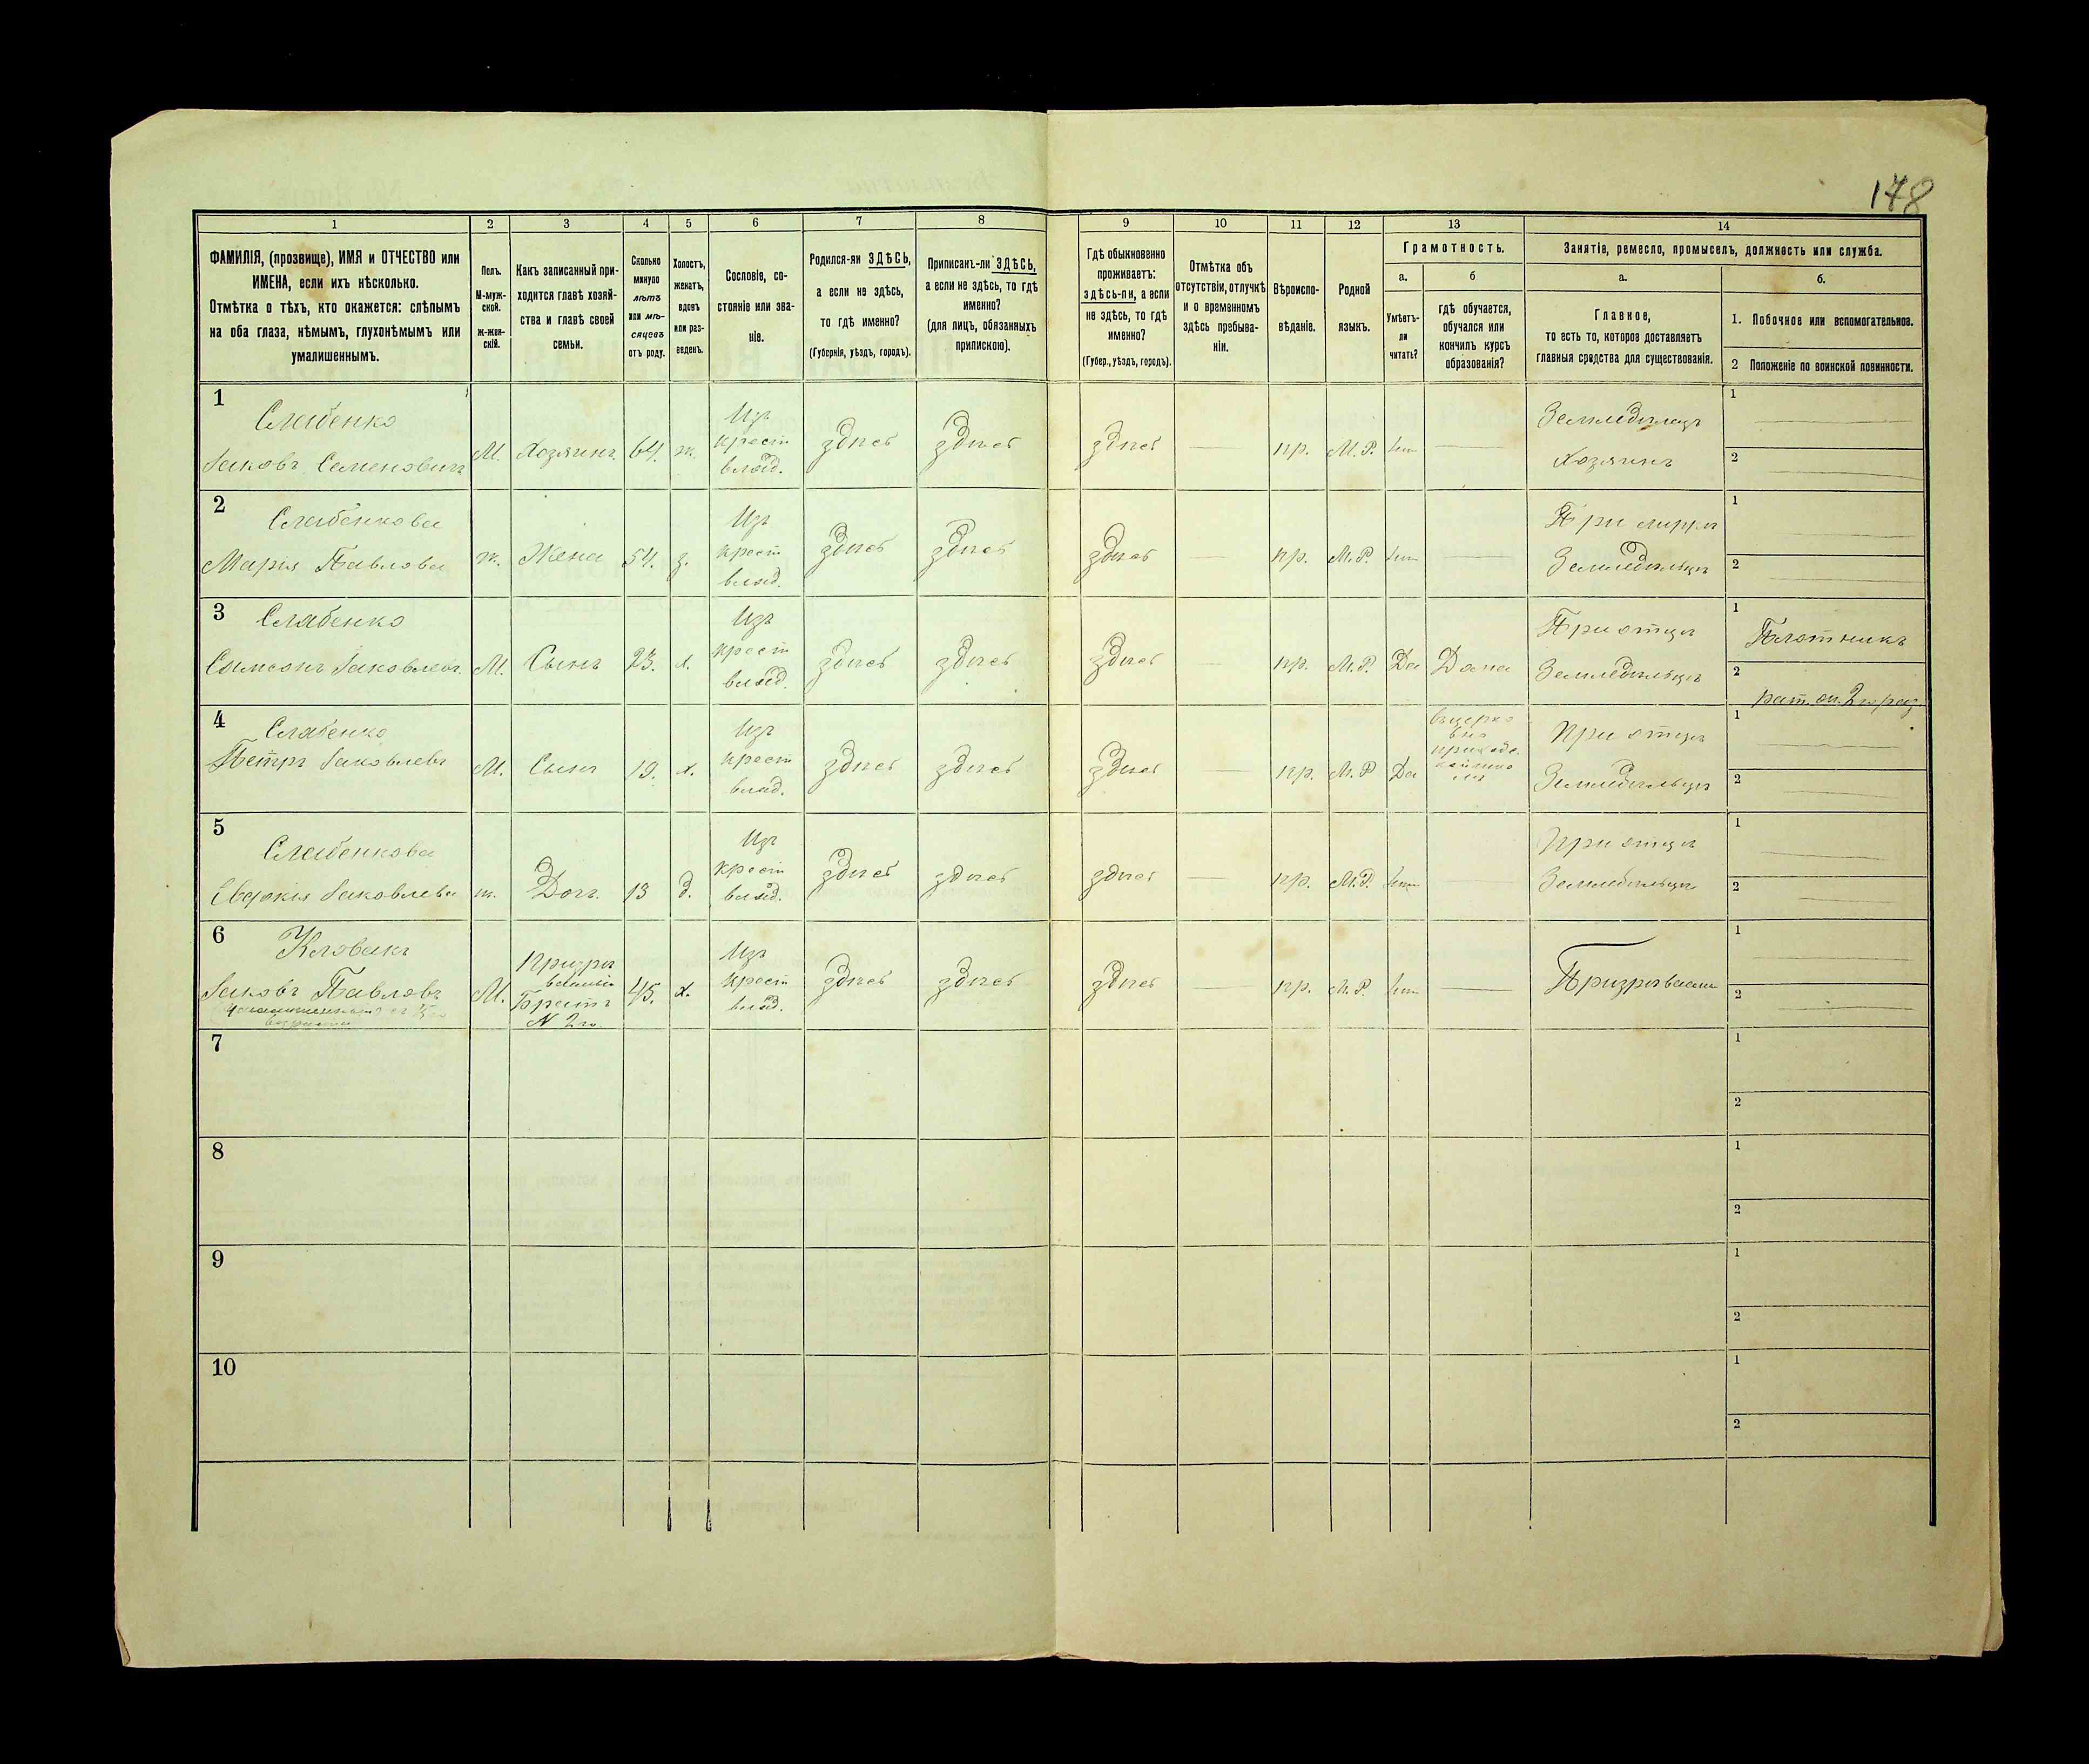 178
1 2 3 4 5 6 7 8 9 10 11 12 13 14
ФАМИЛІЯ, (прозвище), ИМЯ и ОТЧЕСТВО или
ИМЕНА, если ихъ нѣсколько.
Отмѣтка о тѣхъ, кто окажется: слѣпымъ
на оба глаза, нѣмымъ, глухонѣмымъ или
умалишеннымъ.
Полъ.
М-муж-
ской.
ж-жен-
скій.
Какъ записанный при-
ходится главѣ хозяй-
ства и главѣ своей
семьи.
Сколько
минуло
лѣтъ
или мѣ-
сяцевъ
отъ роду.
Холостъ,
женатъ,
вдовъ
или раз-
веденъ.
Сословіе, со-
стояніе или зва-
ніе.
Родился-ли ЗДѢСЬ,
а если не здѣсь,
то гдѣ именно?
(Губернія, уѣздъ, городъ).
Приписанъ-ли ЗДѢСЬ,
а если не здѣсь, то гдѣ
именно?
(для лицъ, обязанныхъ
припискою).
Гдѣ обыкновенно
проживаетъ:
здѣсь-ли, а если
не здѣсь, то гдѣ
именно?
(Губер., уѣздъ, городъ).
Отмѣтка объ
отсутствіи, отлучкѣ
и о временномъ
здѣсь пребыва-
ніи.
Вѣроиспо-
вѣданіе.
Родной
языкъ.
Грамотность.
а. б
Умѣетъ-
ли
читать?
гдѣ обучается,
обучался или
кончилъ курсъ
образованія?
Занятіе, ремесло, промыселъ, должность или служба.
а. б.
Главное,
то есть то, которое доставляетъ
главныя средства для существованія.
1. Побочное или вспомогательное.
2 Положеніе по воинской повинности.
1
Слабенко
Іаковъ Семеновичъ
М. Хозяинъ. 64. ж.
Изъ
крест
влад.
здѣсь здѣсь здѣсь — пр. М. Р. нѣт —
Земледѣлецъ
Хозяинъ
1 —
2 —
2
Слабенкова
Марія Павлова
ж. Жена 54. з.
Изъ
крест
влад.
здѣсь здѣсь здѣсь — пр. М. Р. нѣт —
При мужѣ
Земледѣльцѣ
1 —
2 —
3
Слабенко
Самсонъ Іаковлевъ.
М. Сынъ 23. х.
Изъ
крест
влад.
здѣсь здѣсь здѣсь — пр. М. Р. Да Дома
При отцѣ
Земледѣльцѣ
1 Плотникъ
2 рат. оп. 2го раз
4
Слабенко
Петръ Іаковлевъ
М. Сынъ 19. х.
Изъ
крест
влад.
здѣсь здѣсь здѣсь — пр. М. Р Да
въ церко
вно
приходс.
При отцѣ
Земледѣльцѣ
1 —
2 —
5
Слабенкова
Евдокія Іаковлева
ж. Дочь. 13 д.
Изъ
крест
влад.
здѣсь здѣсь здѣсь пр. М. Р. нѣт —
При отцѣ
Земледѣльцѣ
1 —
2 —
6
Кловакъ
Іаковъ Павловъ
М.
Призрѣ
ваемый
Братъ
N 2го.
45. х.
Изъ
крест
влад.
здѣсь здѣсь здѣсь — пр. М. Р. нѣт —
Призрѣваем
1 —
2 —
7
1
2
8
1
2
9
1
2
10
1
2